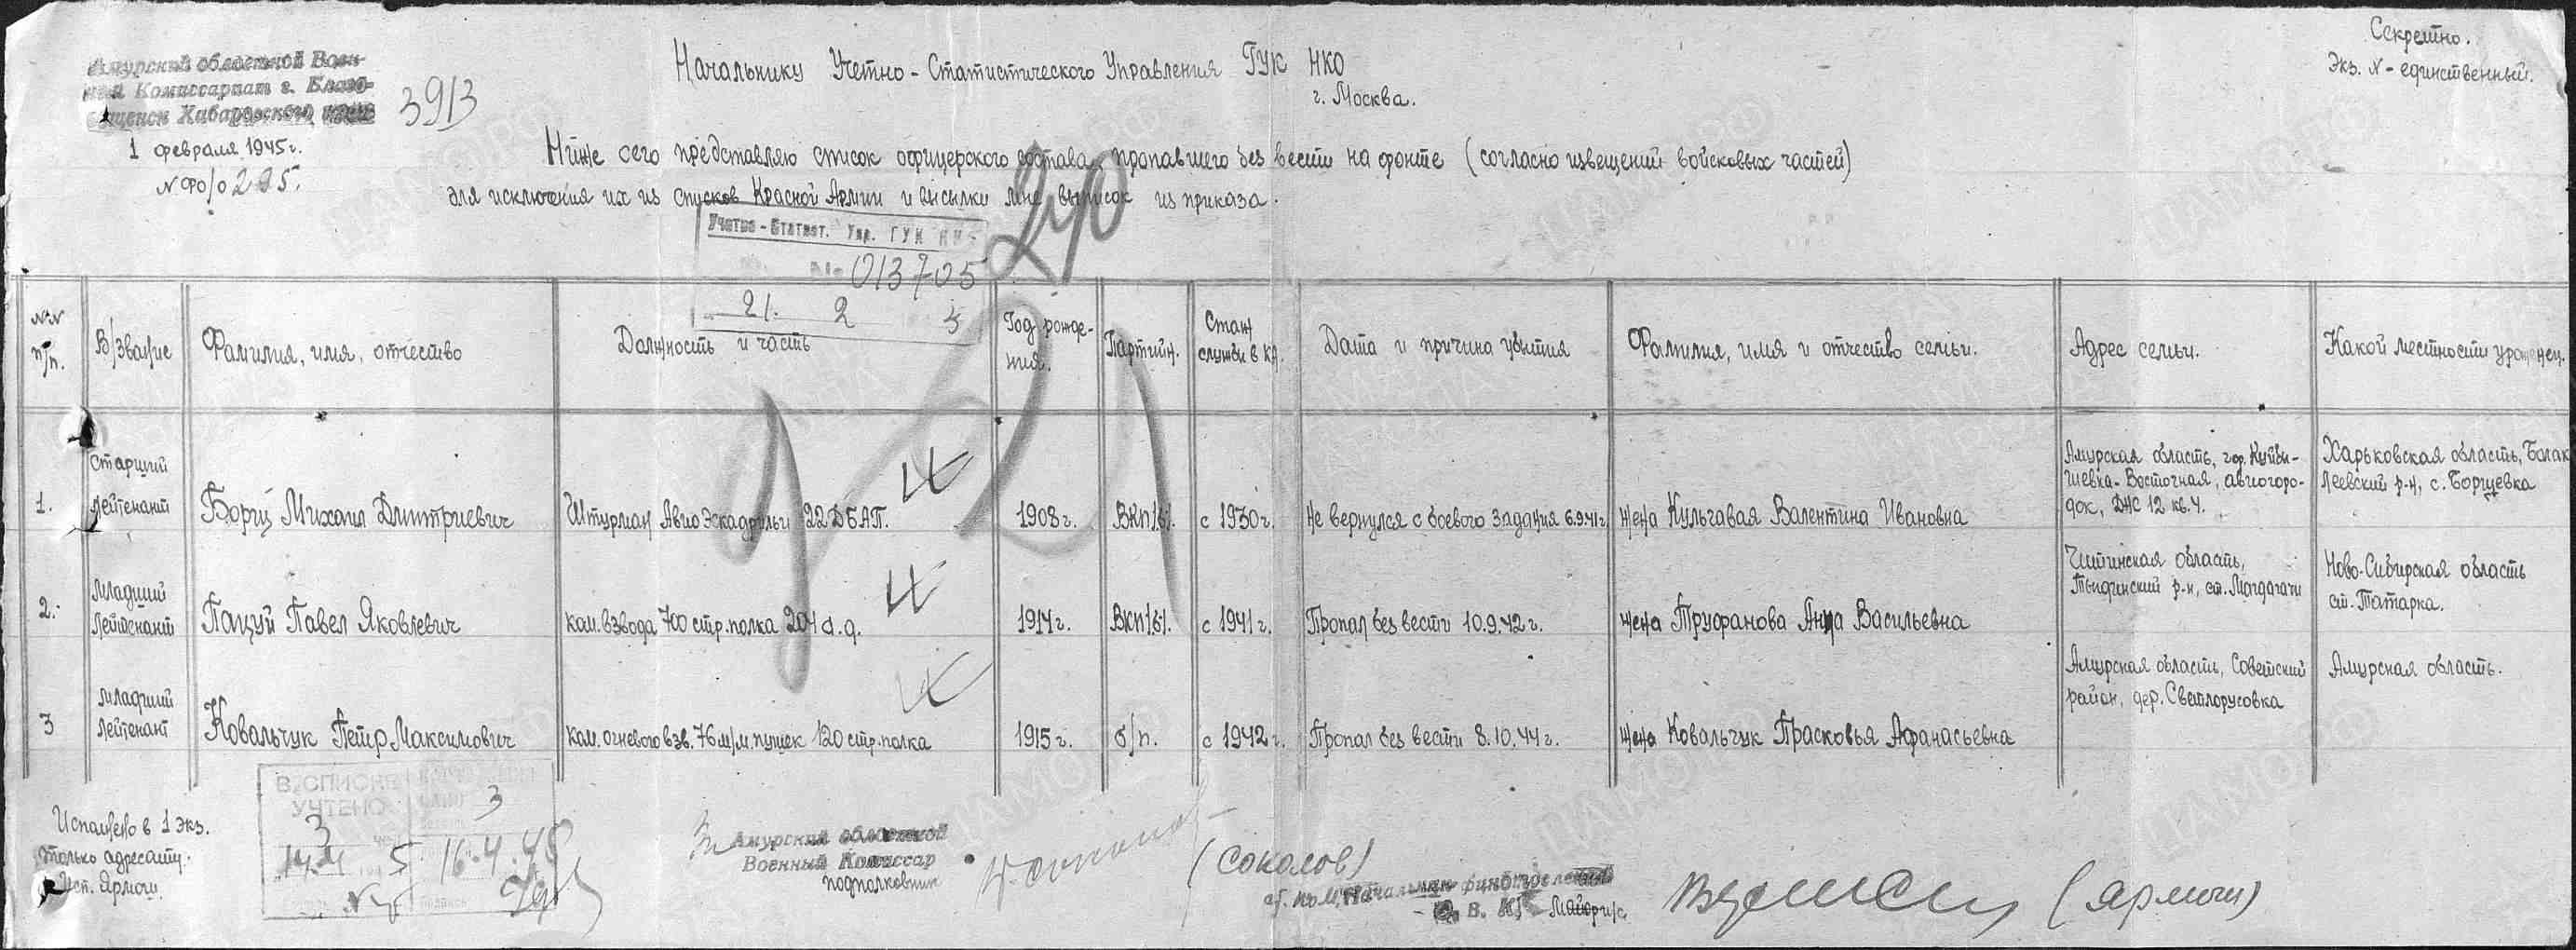 Секретно.
Экз. N - единственный.
Амурский областной Воен-
ный Комиссариат г. Благо-
вещенск Хабаровского края
3913
1 февраля 1945г.
N Фо/0295.
Начальнику Учетно-Статистического Управления ГУК НКО
г. Москва.
Ниже сего представляю список офицерского состава, пропавшего без вести на фронте (согласно извещений войсковых частей)
для исключения их из списков Красной Армии и высылки мне выписок из приказа.
240
Учетно-Статист. Упр. ГУК НК
№ 013705
21. 2 5
NN п/п.
В/звание
Фамилия, имя, отчество
Должность и часть
Год рожде-
ния.
Партийн.
Стаж
службы в КА.
Дата и причина убытия
Фамилия, имя и отчество семьи.
Адрес семьи.
Какой местности уроженец.
1.
Старший
Лейтенант
Борщ Михаил Дмитриевич
Штурман Авио Эскадрильи 22 ДБАП.
1908г.
ВКП/б/.
с 1930г.
Не вернулся с боевого задания 6.9.41г.
жена Кульгавая Валентина Ивановна
Амурская область, гор. Куйбы-
шевка-Восточная, авиогоро-
док, ДНС 12 кв. 4.
Харьковская область, Балак
леевский р-н, с. Борщевка
2.
Младший
Лейтенант
Пацуй Павел Яковлевич
ком. взвода 700 стр. полка 204 с.д.
1914г.
ВКП/б/.
с 1941г.
Пропал без вести 10.9.42г.
жена Труфанова Анна Васильевна
Читинская область,
Тындинский р-н, ст. Магдагачи
Ново-Сибирская область
ст. Татарка.
3
Младший
Лейтенант
Ковальчук Петр Максимович
Ком. огневого взв. 76 м/м. пушек 120 стр. полка
1915г.
б/п.
с 1942г.
Пропал без вести 8.10.44г.
жена Ковальчук Прасковья Афанасьевна
Амурская область, Советский
район, дер. Светлорусовка
Амурская область.
Исполнено в 1 экз.
только адресату.
Исп. Ярмоги
В СПИСКЕ
УЧТЕНО
3
3
14.4 5
16.4.45
Амурский областной
Военный Комиссар
подполковник
(Соколов)
Начальник
Майор и/с.
(Ярмоги)